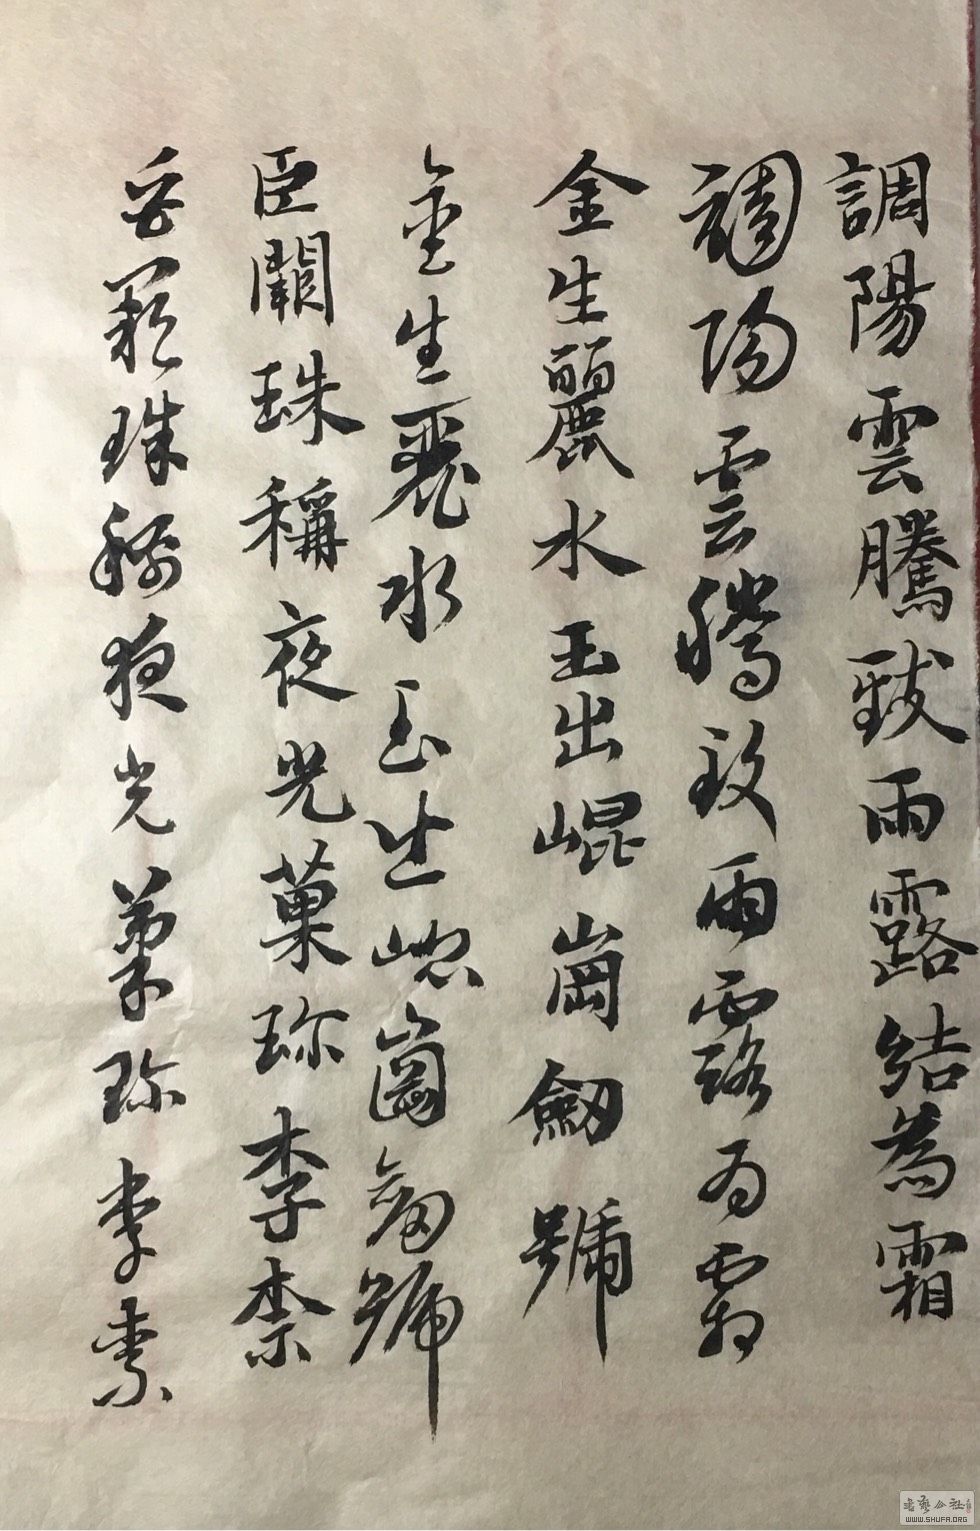 調陽雲騰致雨露結為霜
調陽雲騰致雨露為霜
金生麗水玉出崐崗劒號
金生麗水玉出崐崗劒號
臣闕珠稱夜光菓珍李柰
臣闕珠稱夜光菓珍李柰
書藝公社
WWW.SHUFA.ORG